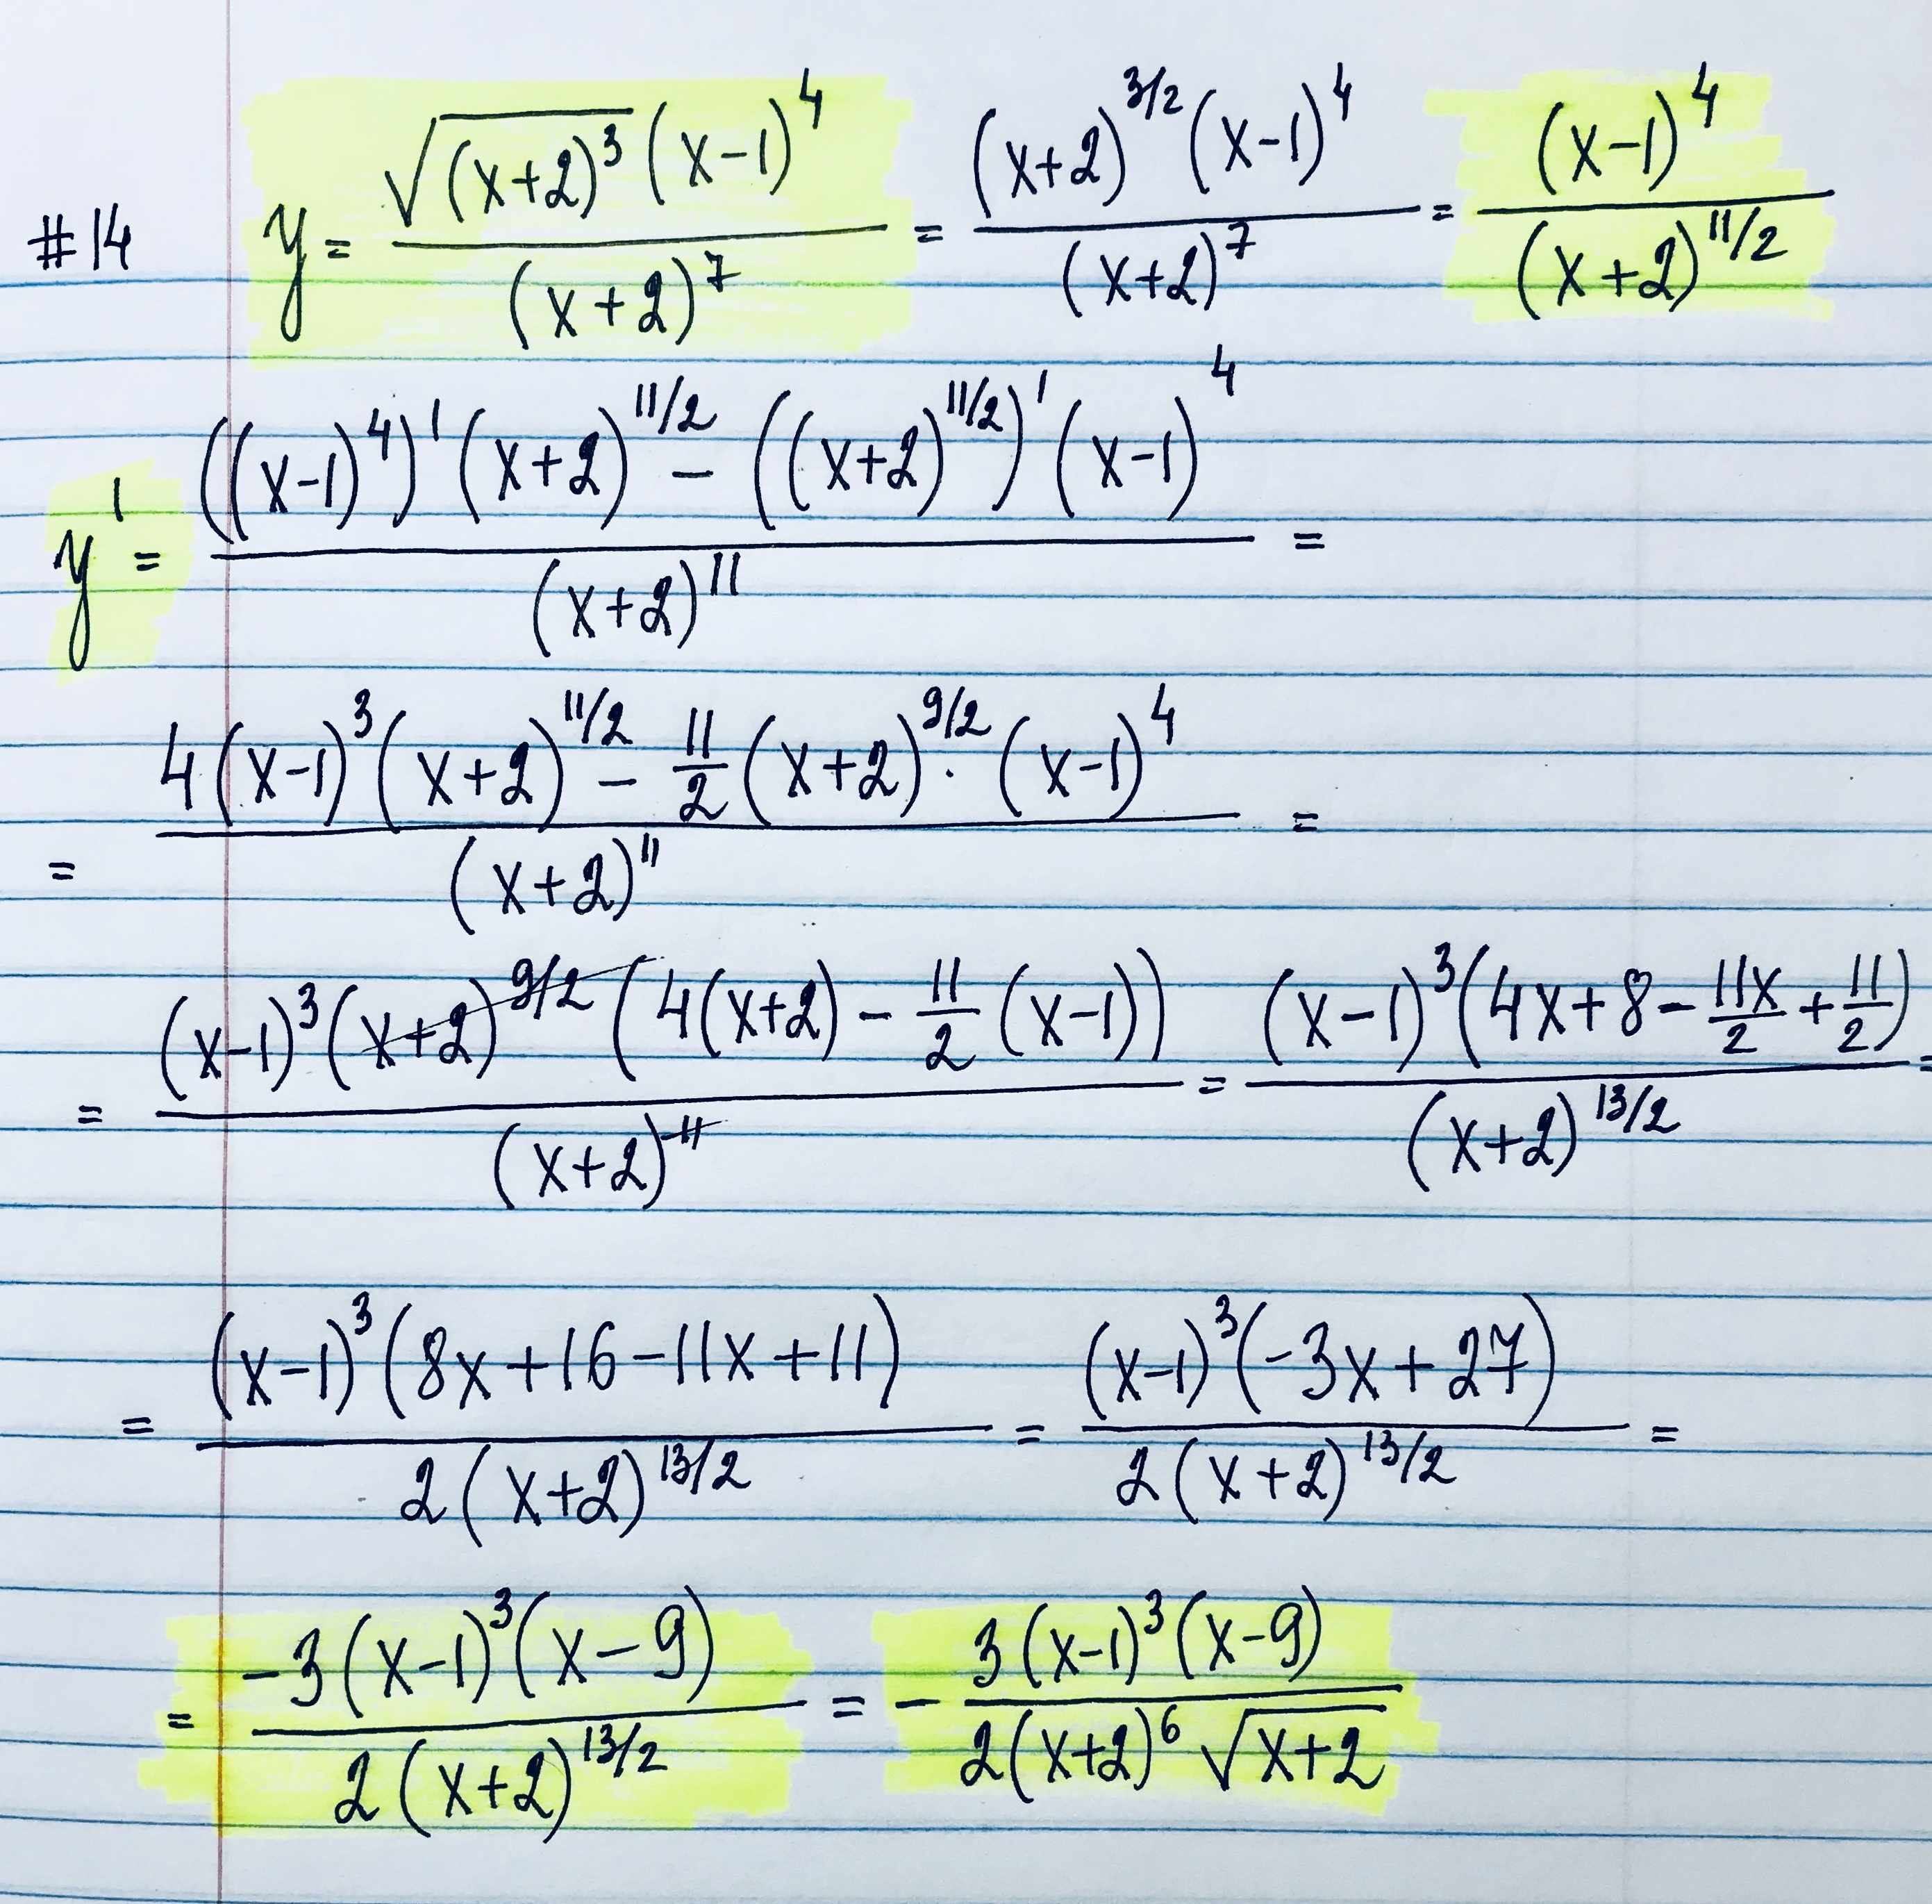 #14 y = √((x+2)³) (x-1)⁴ / (x+2)⁷ = (x+2)^(3/2) (x-1)⁴ / (x+2)⁷ = (x-1)⁴ / (x+2)^(11/2)
y' = (((x-1)⁴)' (x+2)^(11/2) - ((x+2)^(11/2))' (x-1)⁴) / (x+2)¹¹ =
= (4(x-1)³ (x+2)^(11/2) - 11/2 (x+2)^(9/2) · (x-1)⁴) / (x+2)¹¹ =
= (x-1)³ (x+2)^(9/2) (4(x+2) - 11/2 (x-1)) / (x+2)¹¹ = (x-1)³ (4x+8 - 11x/2 + 11/2) / (x+2)^(13/2) =
= (x-1)³ (8x+16-11x+11) / 2(x+2)^(13/2) = (x-1)³ (-3x+27) / 2(x+2)^(13/2) =
= -3(x-1)³ (x-9) / 2(x+2)^(13/2) = - 3(x-1)³ (x-9) / 2(x+2)⁶ √(x+2)